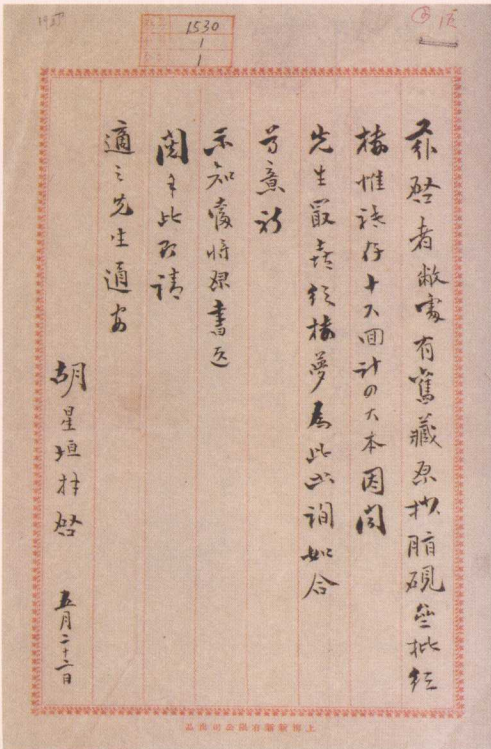 1530
1
1
茲啓者敝處有舊藏原抄脂硯齋批紅
樓惟祗存十六回計四大本因聞
先生最喜紅樓夢爲此函詢如合
尊意祈
示知當將原書送
閱手此即請
適之先生道安
胡星垣拜啓 五月二十二日
上海新新有限公司